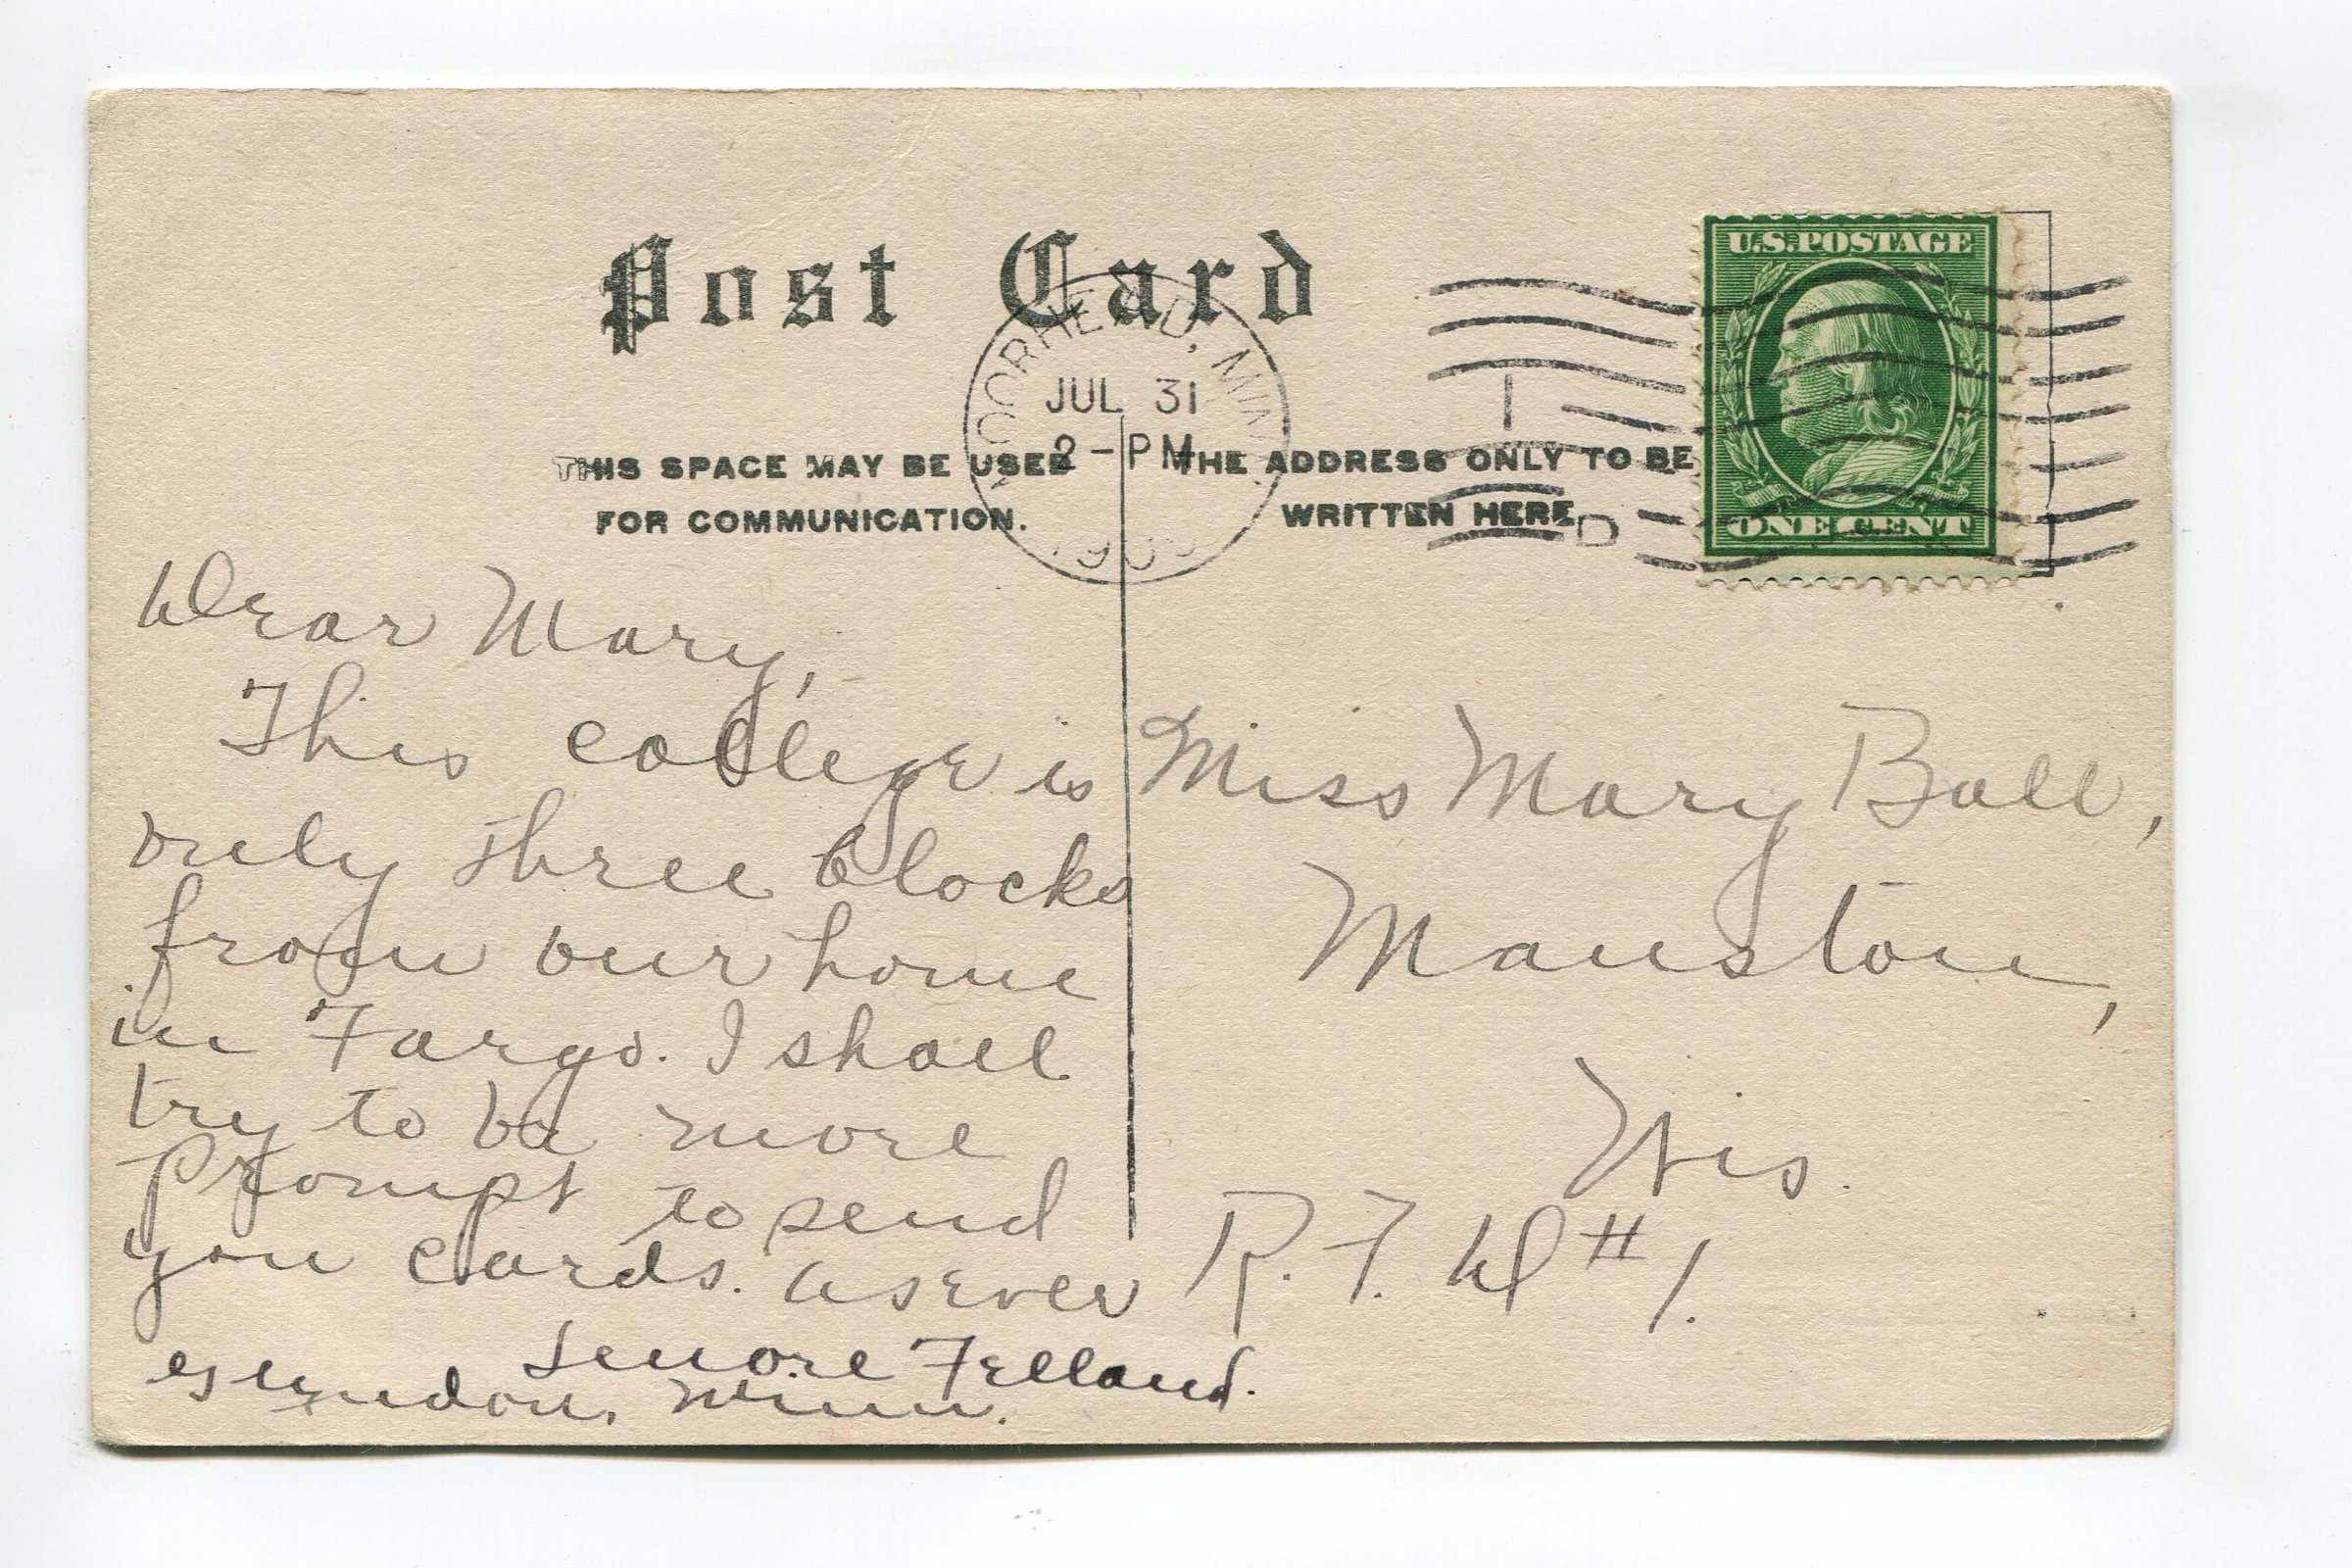 Post Card
U.S. POSTAGE
MOORHEAD, MINN.
JUL 31
2-PM
THIS SPACE MAY BE USED
FOR COMMUNICATION.
THE ADDRESS ONLY TO BE
WRITTEN HERE
ONE CENT
D
Dear Mary,
This college is
only three blocks
from our home
in Fargo. I shall
try to be more
prompt to send
you cards. As ever
Lenore Felland.
Glyndon, Minn.
Miss Mary Ball,
Mauston,
Wis.
R. F. D #1.